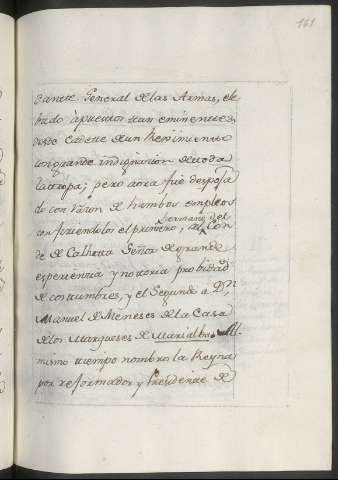 161
danete General de las Armas, ele
bado à puestos tan eminentes,
desde Cadete de un Regimiento
con grande indignacion de toda
la tropa; pero aora fuè despoja
do con razon de hambos empleos
confiriendolos el primero, al hermano del Con
de de Calheta Señor de grande
experiencia y notoria probidad
de costumbres, y el Segundo a Dn
Manuel de Meneses de la Casa
de los Marqueses de Marialba. Al
mismo tiempo nombrò la Reyna
por reformador y Presidente de